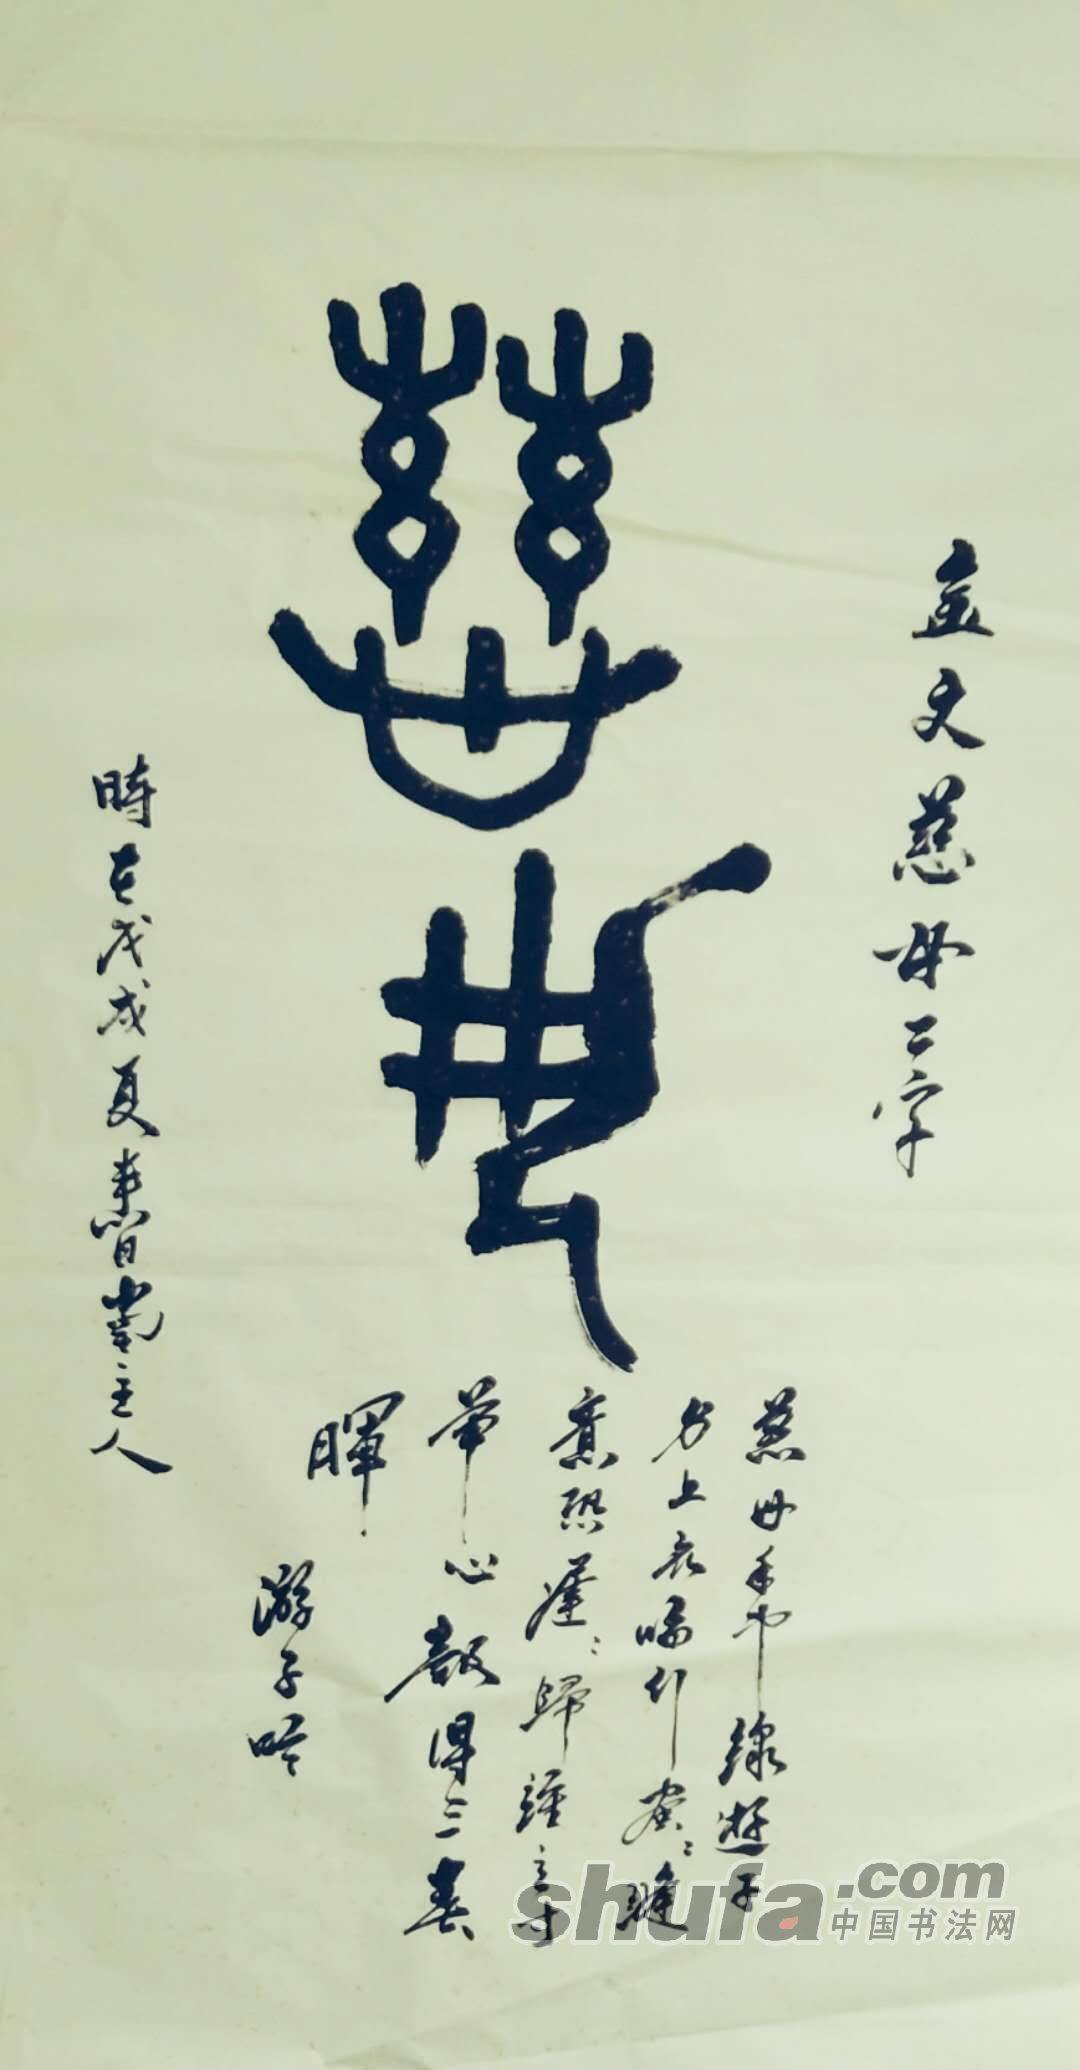 金文慈母二字
慈母
慈母手中線遊子
身上衣臨行密〻縫
意恐遲〻歸誰言寸
草心報得三春
暉
游子吟
時在戊戌夏堂主人
shufa.com
中国书法网